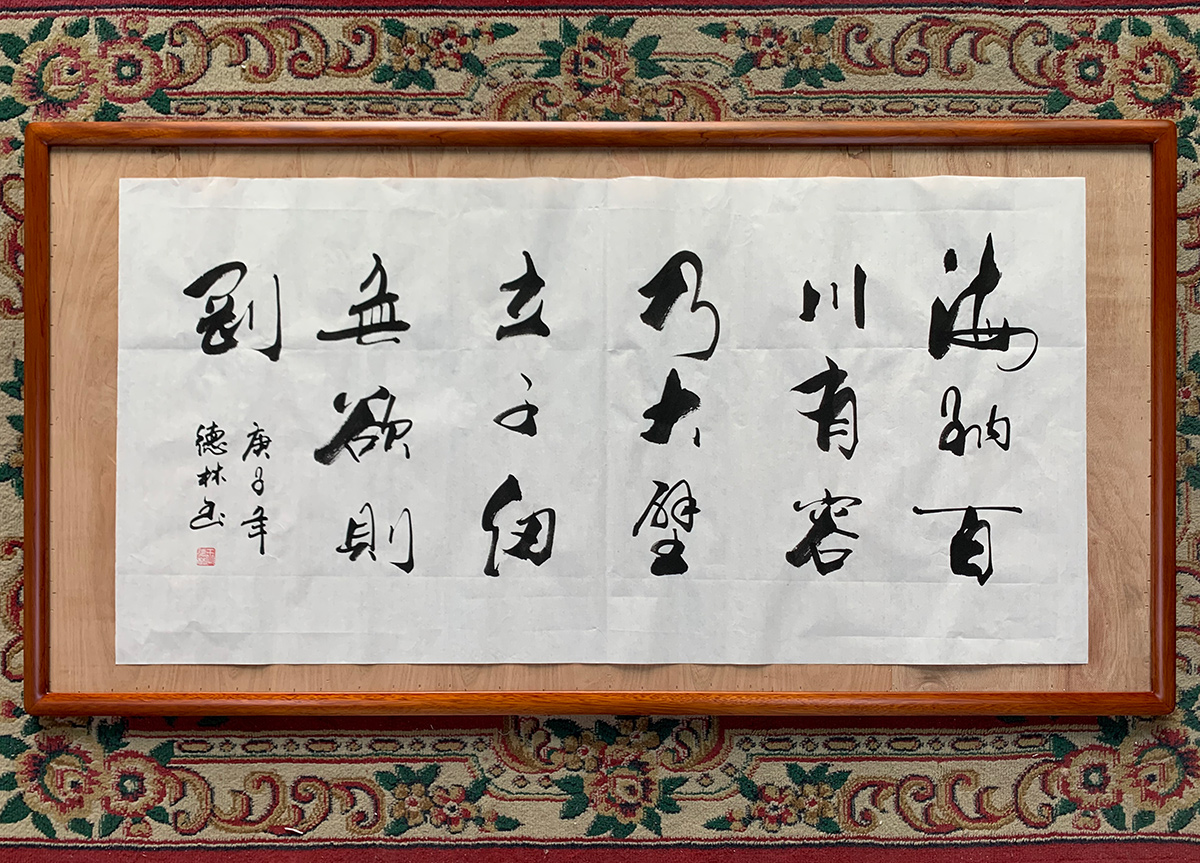 海納百
川有容
乃大壁
立千仞
無欲則
剛
庚子年
德林书